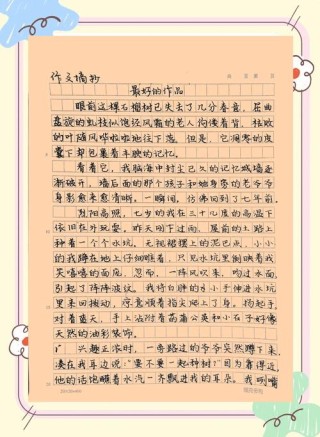 作文摘抄
最好的作品
眼前这棵石榴树已失去了几分春意,屈曲
盘旋的虬枝似饱经风霜的老人佝偻着背,枯败
的叶随风哗啦啦地往下落。但是,它凋零的皮
囊下却包裹着丰腴的记忆。
看着它,我脑海中封尘已久的记忆城墙逐
渐破开,墙后面的那个孩子和她身旁的老爷爷
身影愈来愈清晰。一瞬间,仿佛回到了七年前
烈阳高照,七岁的我在三十几度的高温下
依旧在外玩耍。昨天刚下过雨,屋前的土路上
种着一个个水坑,无规裙摆上的泥巴点,小小
的我蹲在地上仔细瞧着,只见水坑里倒映着我
笑嘻嘻的面庞。忽而,一阵风吹来,吻过水面,
引起了阵阵波纹。我将白胖的小手伸进水坑
里来回搅动,凉意顺着指尖爬上了身。狗起手,
对着蓝天,手上沾附着葡蒲公英和小石子好像
天然的油彩装饰。
兴趣正浓时,一旁路过的爷爷突然蹲下来,
凑在我耳边说:“要不要一起种树?”因为靠得近
他的话饱蘸着水汽一齐飘进我的耳朵。我咧嘴